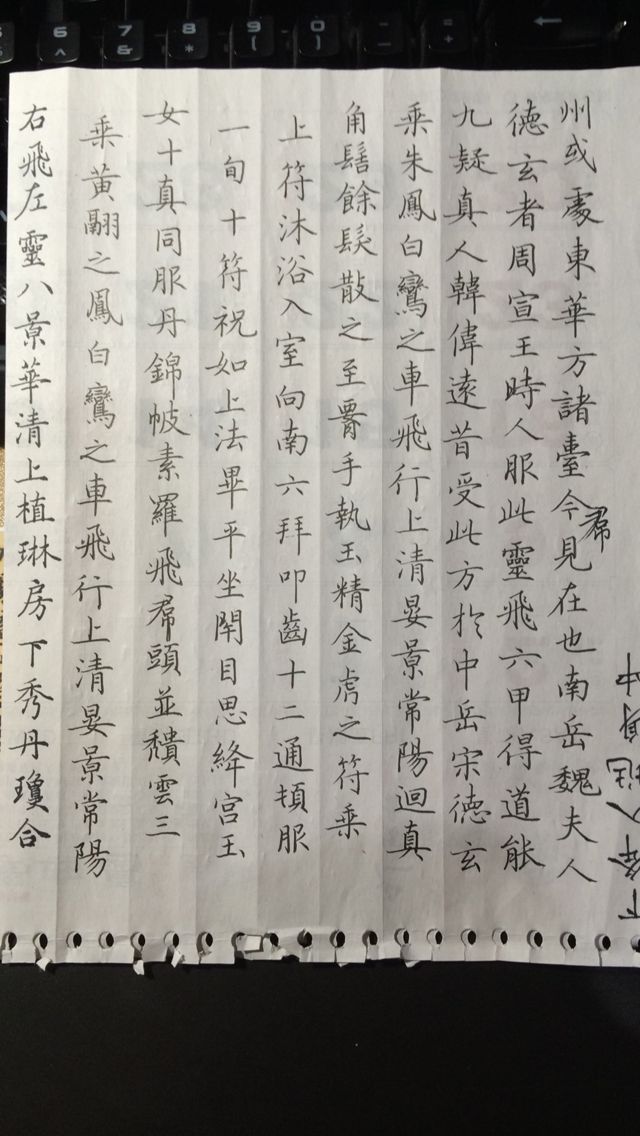 州或處東華方諸臺今見在也南岳魏夫人
德玄者周宣王時人服此靈飛六甲得道能
九疑真人韓偉遠昔受此方於中岳宋德玄
乘朱鳳白鸞之車飛行上清晏景常陽迴真
角髻餘髮散之至署手執玉精金虎之符乘
上符沐浴入室向南六拜叩齒十二通頓服
一旬十符祝如上法畢平坐閉目思絳宮玉
女十真同服丹錦帔素羅飛帬頭並穨雲三
乘黃翮之鳳白鸞之車飛行上清晏景常陽
右飛左靈八景華清上植琳房下秀丹瓊合
帬
6
^
7
&
8
*
9
(
0
)
-
=
+